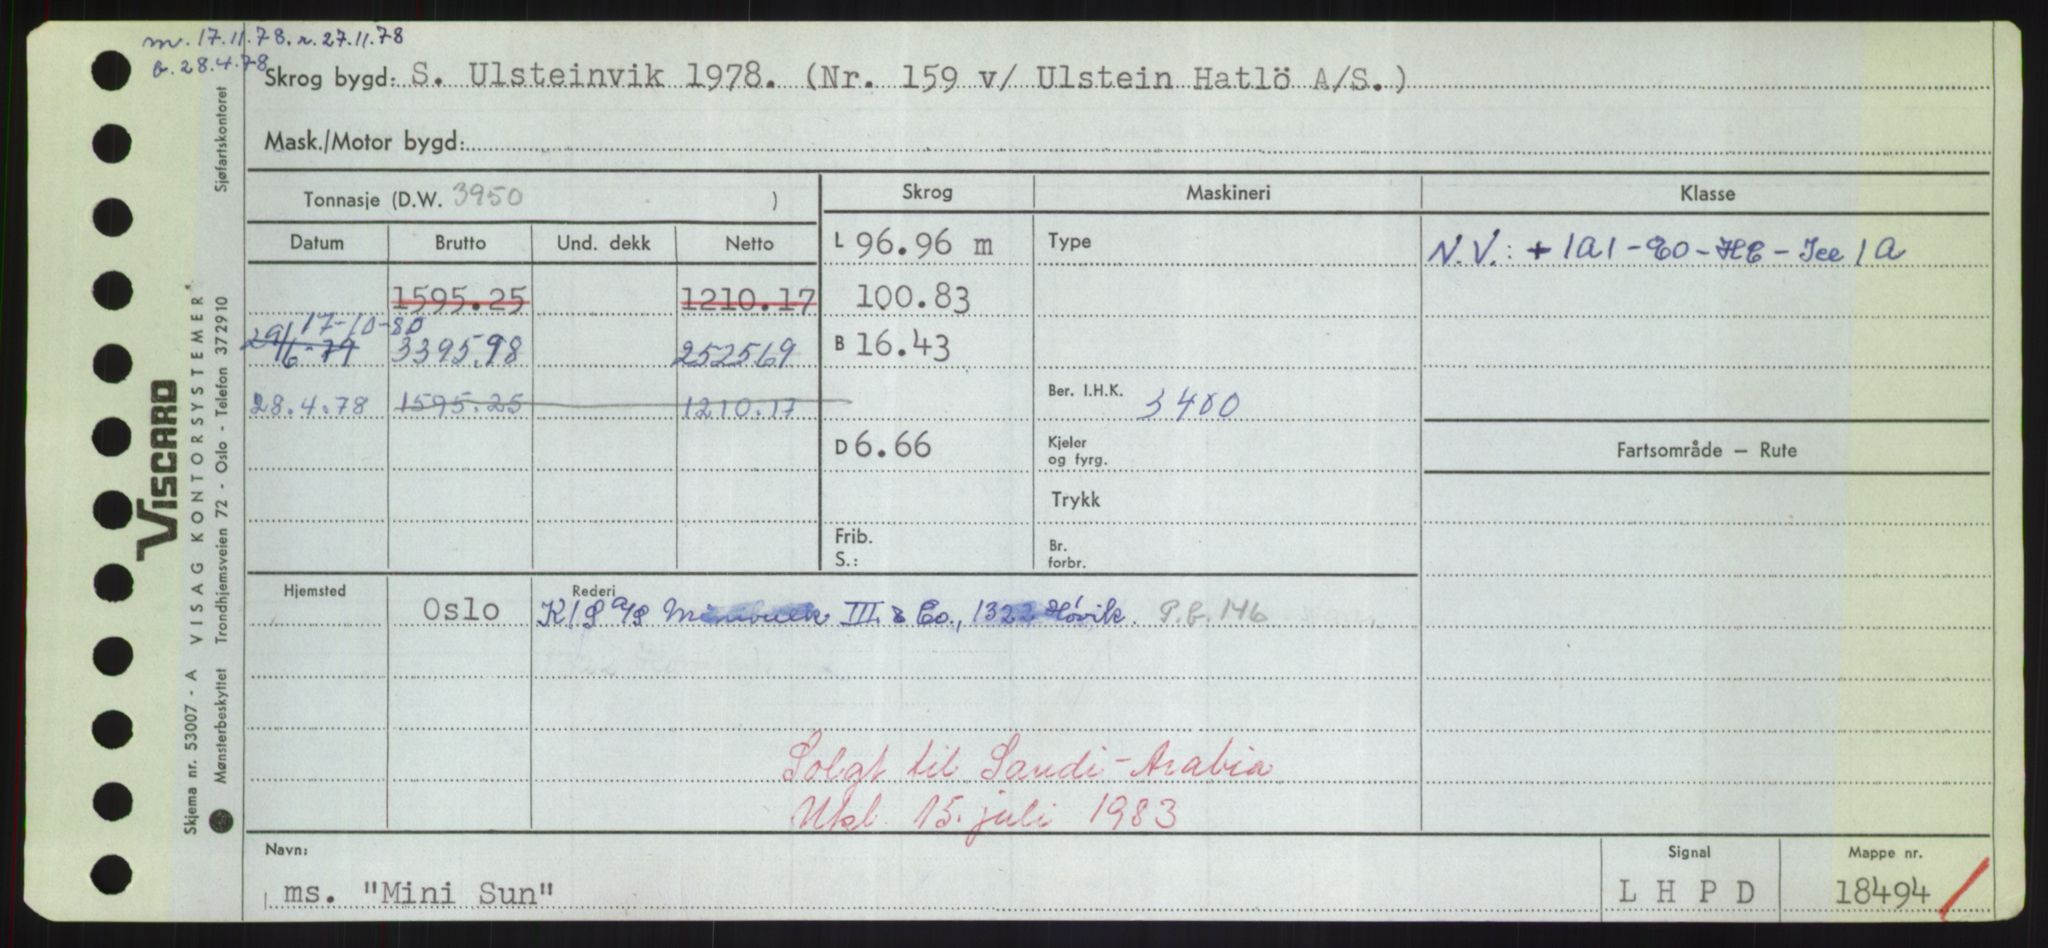 m. 17.11.78. r. 27.11.78
b. 28.4.78
Skrog bygd: S. Ulsteinvik 1978. (Nr. 159 v/ Ulstein Hatlö A/S.)
Mask./Motor bygd:
Tonnasje (D.W. 3950 )
Skrog
Maskineri
Klasse
Datum
Brutto
Und. dekk
Netto
L 96.96 m
Type
N.V.: + 1A1 - EO - HC - Ice 1A
1595.25
1210.17
100.83
17-10-80
29/6-79
3395.98
2525.69
B 16.43
28.4.78
1595.25
1210.17
Ber. I.H.K. 3400
D 6.66
Kjeler
og fyrg.
Fartsområde — Rute
Trykk
Frib.
S.:
Br.
forbr.
Hjemsted
Rederi
Oslo
K/S A/S Minibulk III & Co., 1322 Høvik. P.b. 146
Solgt til Saudi-Arabia
Utsl. 15. juli 1983
Navn:
Signal
Mappe nr.
ms. "Mini Sun"
L H P D
18494
VISCARD
Skjema nr. 53007 - A VISAG KONTORSYSTEMER
Mønsterbeskyttet Trondhjemsveien 72 - Oslo - Telefon 372910 Sjøfartskontoret